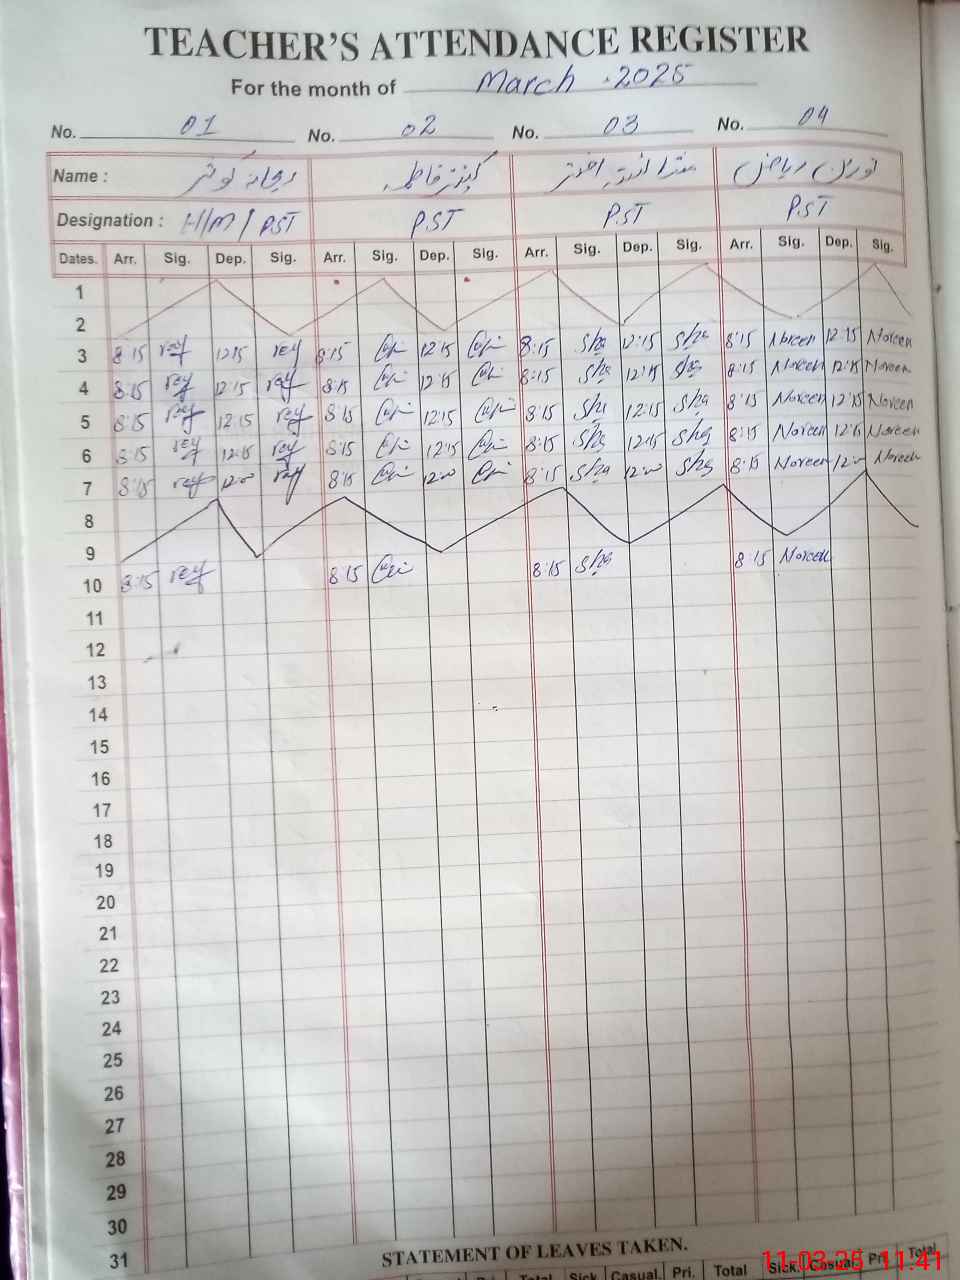 TEACHER'S ATTENDANCE REGISTER
For the month of March . 2025
No. 01 No. 02 No. 03 No. 04
Name : ریحانہ کوثر کنیز فاطمہ اختر نورین ریاض
Designation : H/M / PST PST PST PST
Dates. Arr. Sig. Dep. Sig. Arr. Sig. Dep. Sig. Arr. Sig. Dep. Sig. Arr. Sig. Dep. Sig.
1
2
3 8:15 12:15 8:15 12:15 8:15 Sha 12:15 Sha 8:15 Noreen 12:15 Noreen
4 8:15 12:15 8:15 12:15 8:15 Sha 12:15 Sha 8:15 Noreen 12:15 Noreen
5 8:15 12:15 8:15 12:15 8:15 Sha 12:15 Sha 8:15 Noreen 12:15 Noreen
6 8:15 12:15 8:15 12:15 8:15 Sha 12:15 Sha 8:15 Noreen 12:15 Noreen
7 8:15 12:00 8:15 12:00 8:15 Sha 12:00 Sha 8:15 Noreen 12:00 Noreen
8
9
10 8:15 8:15 8:15 Sha 8:15 Noreen
11
12
13
14
15
16
17
18
19
20
21
22
23
24
25
26
27
28
29
30
31
STATEMENT OF LEAVES TAKEN.
Total Sick. Casual. Pri. Total Sick. Casual. Pri. Total
11-03-25 11:41